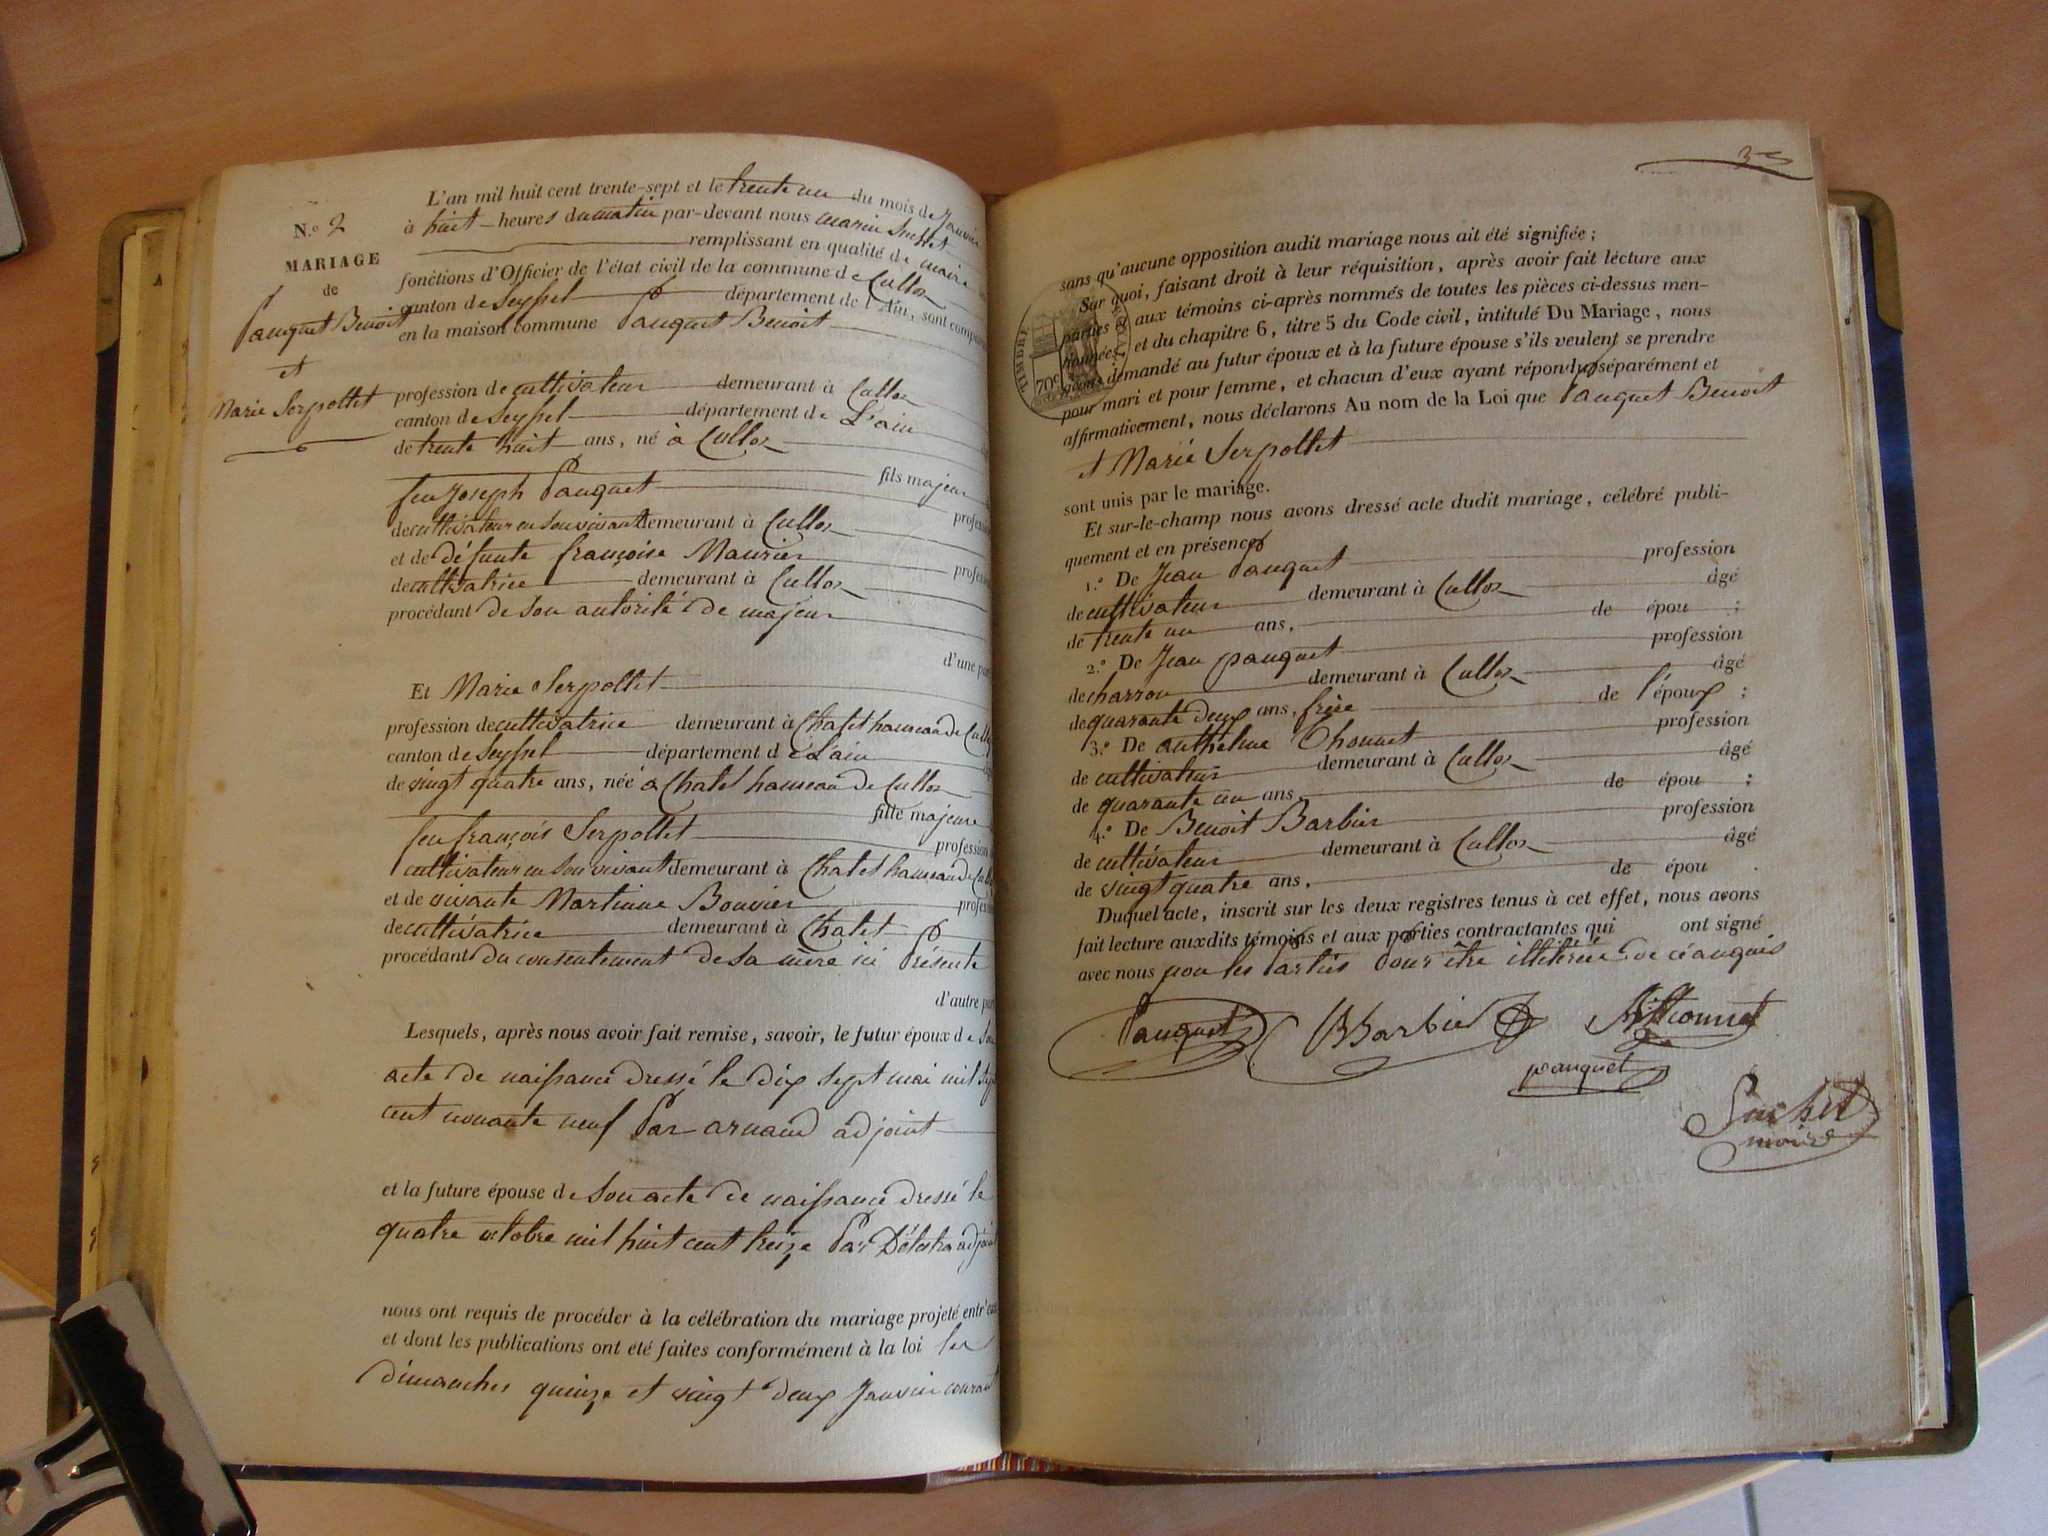 N.º 2
MARIAGE
de
Pauquet Benoit
et
Marie Serpollet
L'an mil huit cent trente-sept et le trente un du mois de Janvier
à huit heures du matin par-devant nous marin Suchet
remplissant en qualité de maire
fonctions d'Officier de l'état civil de la commune de Culloz
canton de Seyssel département de l'Ain, sont comparus
en la maison commune Pauquet Benoit
profession de cultivateur demeurant à Culloz
canton de Seyssel département de L'ain
de trente huit ans, né à Culloz
fils majeur
feu Joseph Pauquet profession
de cultivateur en son vivant demeurant à Culloz
et de défunte françoise Maurier profession
de cultivatrice demeurant à Culloz
procédant de son autorité de majeur
d'une part
Et Marie Serpollet
profession de cultivatrice demeurant à Chatel hameau de Culloz
canton de Seyssel département de L'ain
de vingt quatre ans, née à Chatel hameau de Culloz
fille majeure
feu françois Serpollet profession
cultivateur en son vivant demeurant à Chatel hameau de Culloz
et de vivante Martinne Bouvier profession
de cultivatrice demeurant à Chatel
procédant du consentement de sa mère ici Présente
d'autre part
Lesquels, après nous avoir fait remise, savoir, le futur époux de son
acte de naissance dressé le dix sept mai mil sept
cent nonante neuf Par arnaud adjoint
et la future épouse de son acte de naissance dressé le
quatre octobre mil huit cent treize Par adjoint
nous ont requis de procéder à la célébration du mariage projeté entr'eux
et dont les publications ont été faites conformément à la loi les
dimanches quinze et vingt deux Janvier courant
3e
TIMBRE ROYAL
70c
sans qu'aucune opposition audit mariage nous ait été signifiée ;
Sur quoi, faisant droit à leur réquisition, après avoir fait lecture aux
parties et aux témoins ci-après nommés de toutes les pièces ci-dessus men-
tionnées, et du chapitre 6, titre 5 du Code civil, intitulé Du Mariage, nous
avons demandé au futur époux et à la future épouse s'ils veulent se prendre
pour mari et pour femme, et chacun d'eux ayant répondu séparément et
affirmativement, nous déclarons Au nom de la Loi que Pauquet Benoit
et Marie Serpollet
sont unis par le mariage.
Et sur-le-champ nous avons dressé acte dudit mariage, célébré publi-
quement et en présence
1.º De Jean Pauquet profession
de cultivateur demeurant à Culloz âgé
de trente un ans, de épou ;
2.º De Jean pauquet profession
de charron demeurant à Culloz âgé
de quarante deux ans, frère de l'époux ;
3.º De anthelme Thonnet profession
de cultivateur demeurant à Culloz âgé
de quarante un ans, de épou ;
4.º De Benoit Barbier profession
de cultivateur demeurant à Culloz âgé
de vingt quatre ans, de épou .
Duquel acte, inscrit sur les deux registres tenus à cet effet, nous avons
fait lecture auxdits témoins et aux parties contractantes qui ont signé
avec nous non les Parties Pour être illitérée de ce enquis
Pauquet
BBarbier
pauquet
Suchet
maire